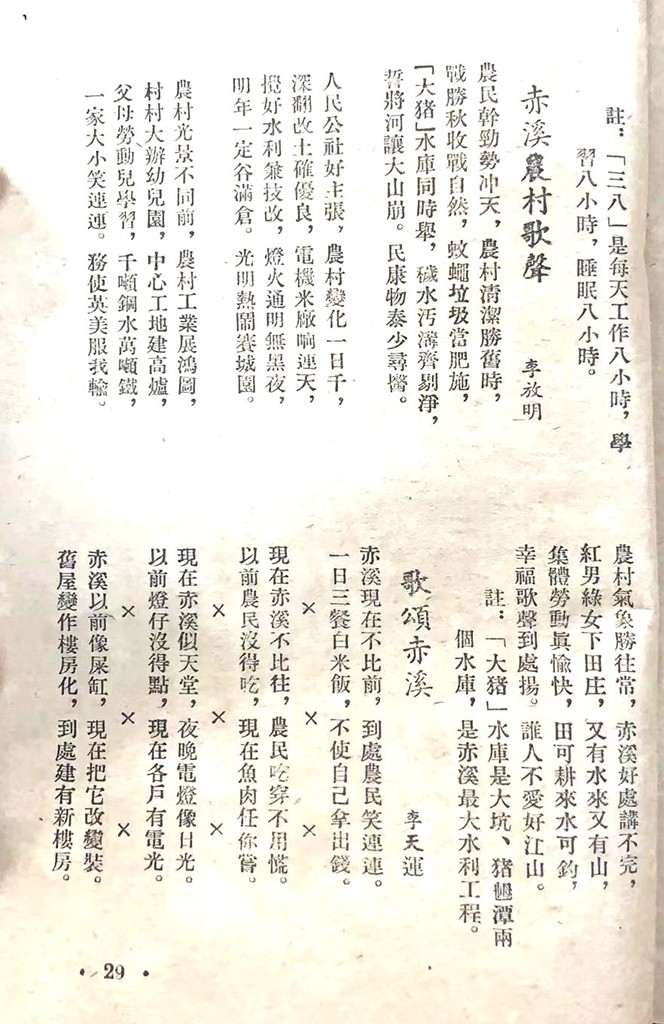 註：「三八」是每天工作八小時，學
習八小時，睡眠八小時。
赤溪農村歌聲
李放明
農民幹勁勢冲天，農村清潔勝舊時，
戰勝秋收戰自然，蚊蠅垃圾當肥施，
「大猪」水庫同時舉，穢水汚溝齊剔淨，
誓將河讓大山崩。民康物泰少尋醫。
人民公社好主張，農村變化一日千，
深翻改土確優良，電機米廠响連天，
攪好水利兼技改，燈火通明無黑夜，
明年一定谷滿倉。光明熱鬧賽城園。
農村光景不同前，農村工業展鴻圖，
村村大辦幼兒園，中心工地建高爐，
父母勞動兒學習，千噸鋼水萬噸鐵，
一家大小笑連連。務使英美服我輸。
農村氣象勝往常，赤溪好處講不完，
紅男綠女下田庄，又有水來又有山，
集體勞動眞愉快，田可耕來水可釣，
幸福歌聲到處揚。誰人不愛好江山。
註：「大猪」水庫是大坑、猪乸潭兩
個水庫，是赤溪最大水利工程。
歌頌赤溪
李天運
赤溪現在不比前，到處農民笑連連。
一日三餐白米飯，不使自己拿出錢。
× × ×
現在赤溪不比往，農民吃穿不用慌。
以前農民沒得吃，現在魚肉任你嘗。
× × ×
現在赤溪似天堂，夜晚電燈像日光。
以前燈仔沒得點，現在各戶有電光。
× × ×
赤溪以前像屎缸，現在把它改變裝。
舊屋變作樓房化，到處建有新樓房。
· 29 ·